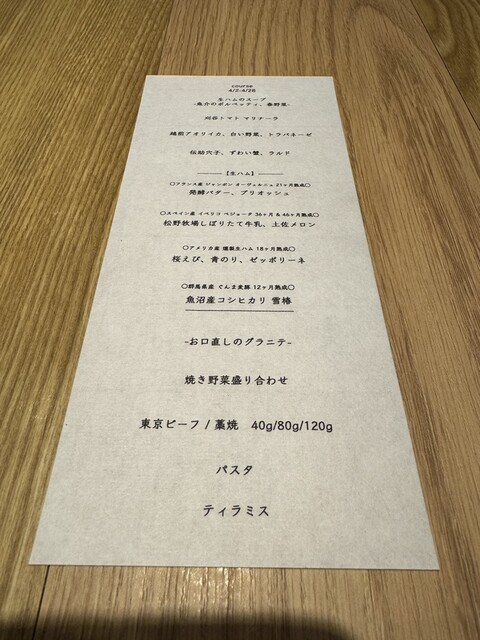 course
4/2-4/28
生ハムのスープ
-魚介のポルペッティ、春野菜-
刈谷トマト マリナーラ
越前アオリイカ、白い野菜、トラパネーゼ
伝助穴子、ずわい蟹、ラルド
【生ハム】
○フランス産 ジャンボン オーヴェルニュ 21ヶ月熟成○
発酵バター、ブリオッシュ
○スペイン産 イベリコ ベジョータ 36ヶ月 & 46ヶ月熟成○
松野牧場しぼりたて牛乳、土佐メロン
○アメリカ産 燻製生ハム 18ヶ月熟成○
桜えび、青のり、ゼッポリーネ
○群馬県産 ぐんま麦豚 12ヶ月熟成○
魚沼産コシヒカリ 雪椿
-お口直しのグラニテ-
焼き野菜盛り合わせ
東京ビーフ / 藁焼 40g/80g/120g
パスタ
ティラミス